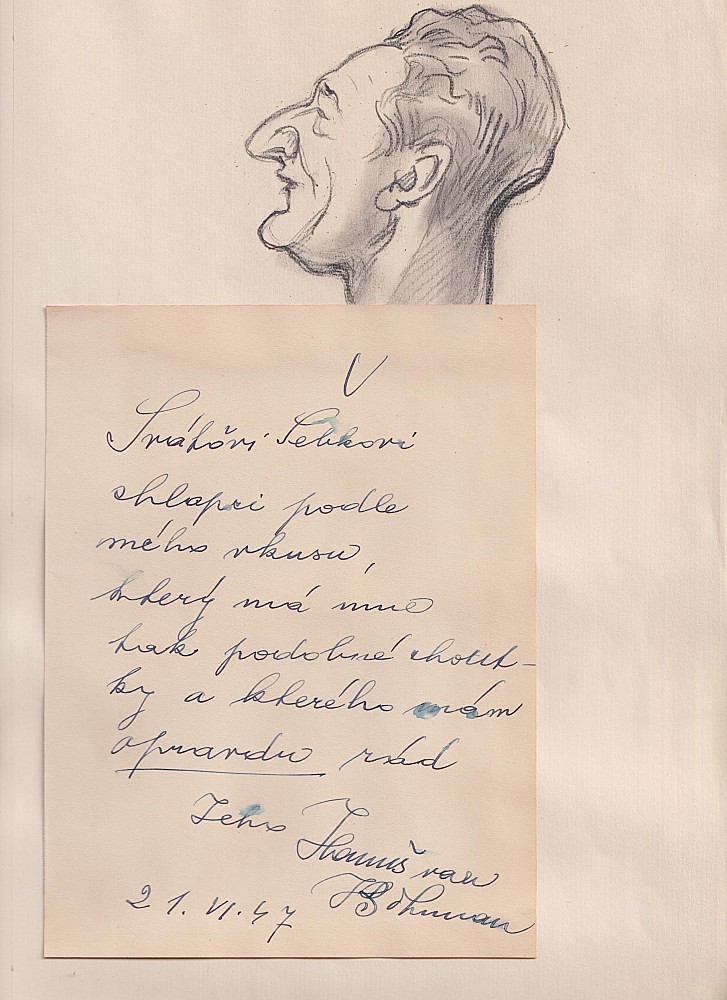 V
Sváťovi Sebkovi
chlapci podle
mého vkusu,
který má mně
tak podobné chout-
ky a kterého mám
opravdu rád
Jeho Hanuš van
Böhman
21.VI.47